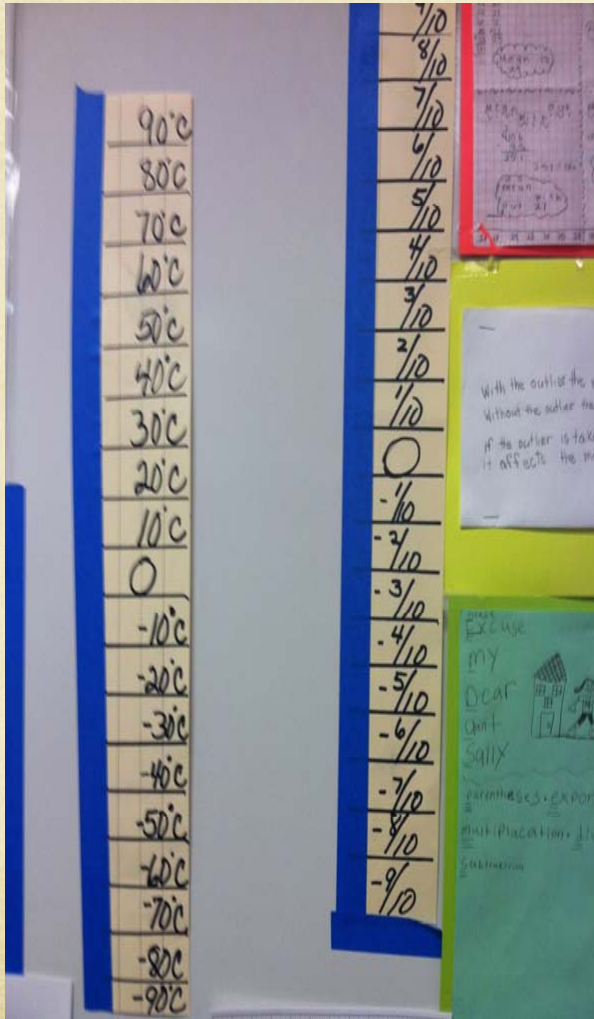 90°C
80°C
70°C
60°C
50°C
40°C
30°C
20°C
10°C
0
-10°C
-20°C
-30°C
-40°C
-50°C
-60°C
-70°C
-80C
-90°C
9/10
8/10
7/10
6/10
5/10
4/10
3/10
2/10
1/10
0
-1/10
-2/10
-3/10
-4/10
-5/10
-6/10
-7/10
-8/10
-9/10
With the outlier the
Without the outlier the
if the outlier is take
it affects the m
Excuse
my
Dear
Aunt
Sally
parentheses. expon
multiplacation.
Subtraction